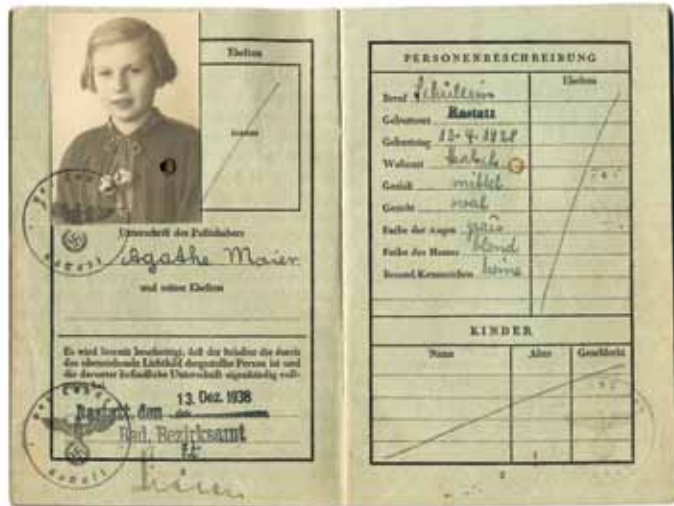 Ehefrau
Unterschrift des Paßinhabers
Agathe Maier
und seiner Ehefrau
Es wird hiermit bescheinigt, daß der Inhaber die durch
das obenstehende Lichtbild dargestellte Person ist und
die darunter befindliche Unterschrift eigenhändig voll-
Rastatt, den 13. Dez. 1938
Bad. Bezirksamt
PERSONENBESCHREIBUNG
Ehefrau
Beruf Schülerin
Geburtsort Rastatt
Geburtstag 13-4-1928
Wohnort
Gestalt mittel
Gesicht oval
Farbe der Augen grau
Farbe des Haares blond
Besond. Kennzeichen keine
KINDER
Name Alter Geschlecht